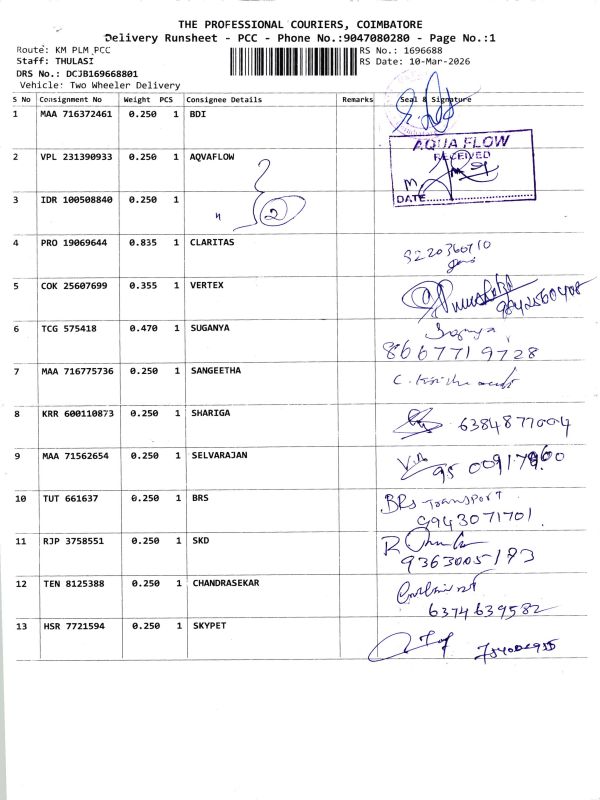 THE PROFESSIONAL COURIERS, COIMBATORE
Delivery Runsheet - PCC - Phone No.:9047080280 - Page No.:1
Route: KM PLM,PCC RS No.: 1696688
Staff: THULASI RS Date: 10-Mar-2026
DRS No.: DCJB169668801
Vehicle: Two Wheeler Delivery
S No Consignment No Weight PCS Consignee Details Remarks Seal & Signature
1 MAA 716372461 0.250 1 BDI
AQUA FLOW
RECEIVED
DATE
2 VPL 231390933 0.250 1 AQVAFLOW
3 IDR 100508840 0.250 1
" 2
4 PRO 19069644 0.835 1 CLARITAS
5 COK 25607699 0.355 1 VERTEX
9842560408
6 TCG 575418 0.470 1 SUGANYA
Suganya
8667719728
7 MAA 716775736 0.250 1 SANGEETHA
8 KRR 600110873 0.250 1 SHARIGA
6384877004
9 MAA 71562654 0.250 1 SELVARAJAN
10 TUT 661637 0.250 1 BRS
BRS TRANSPORT
9943071701
11 RJP 3758551 0.250 1 SKD
9363005193
12 TEN 8125388 0.250 1 CHANDRASEKAR
6374639582
13 HSR 7721594 0.250 1 SKYPET